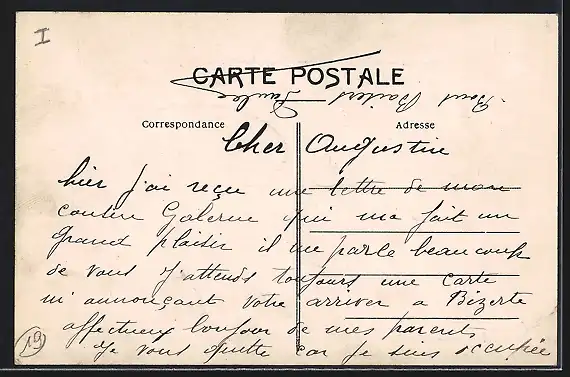 I
CARTE POSTALE
Bons Baisers Paulee
Correspondance
Adresse
Cher Augustin
hier j'ai reçu une lettre de mon
cousin Galerne qui ma fait un
grand plaisir il me parle beaucoup
de vous J'attends toujours une carte
m'annonçant votre arriver a Bizerte
affectueux bonjour de mes parents
Je vous quitte car je suis occupée
19